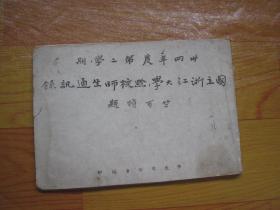 卅四年度第二學期
國立浙江大學黔校師生通訊錄
竺可楨題